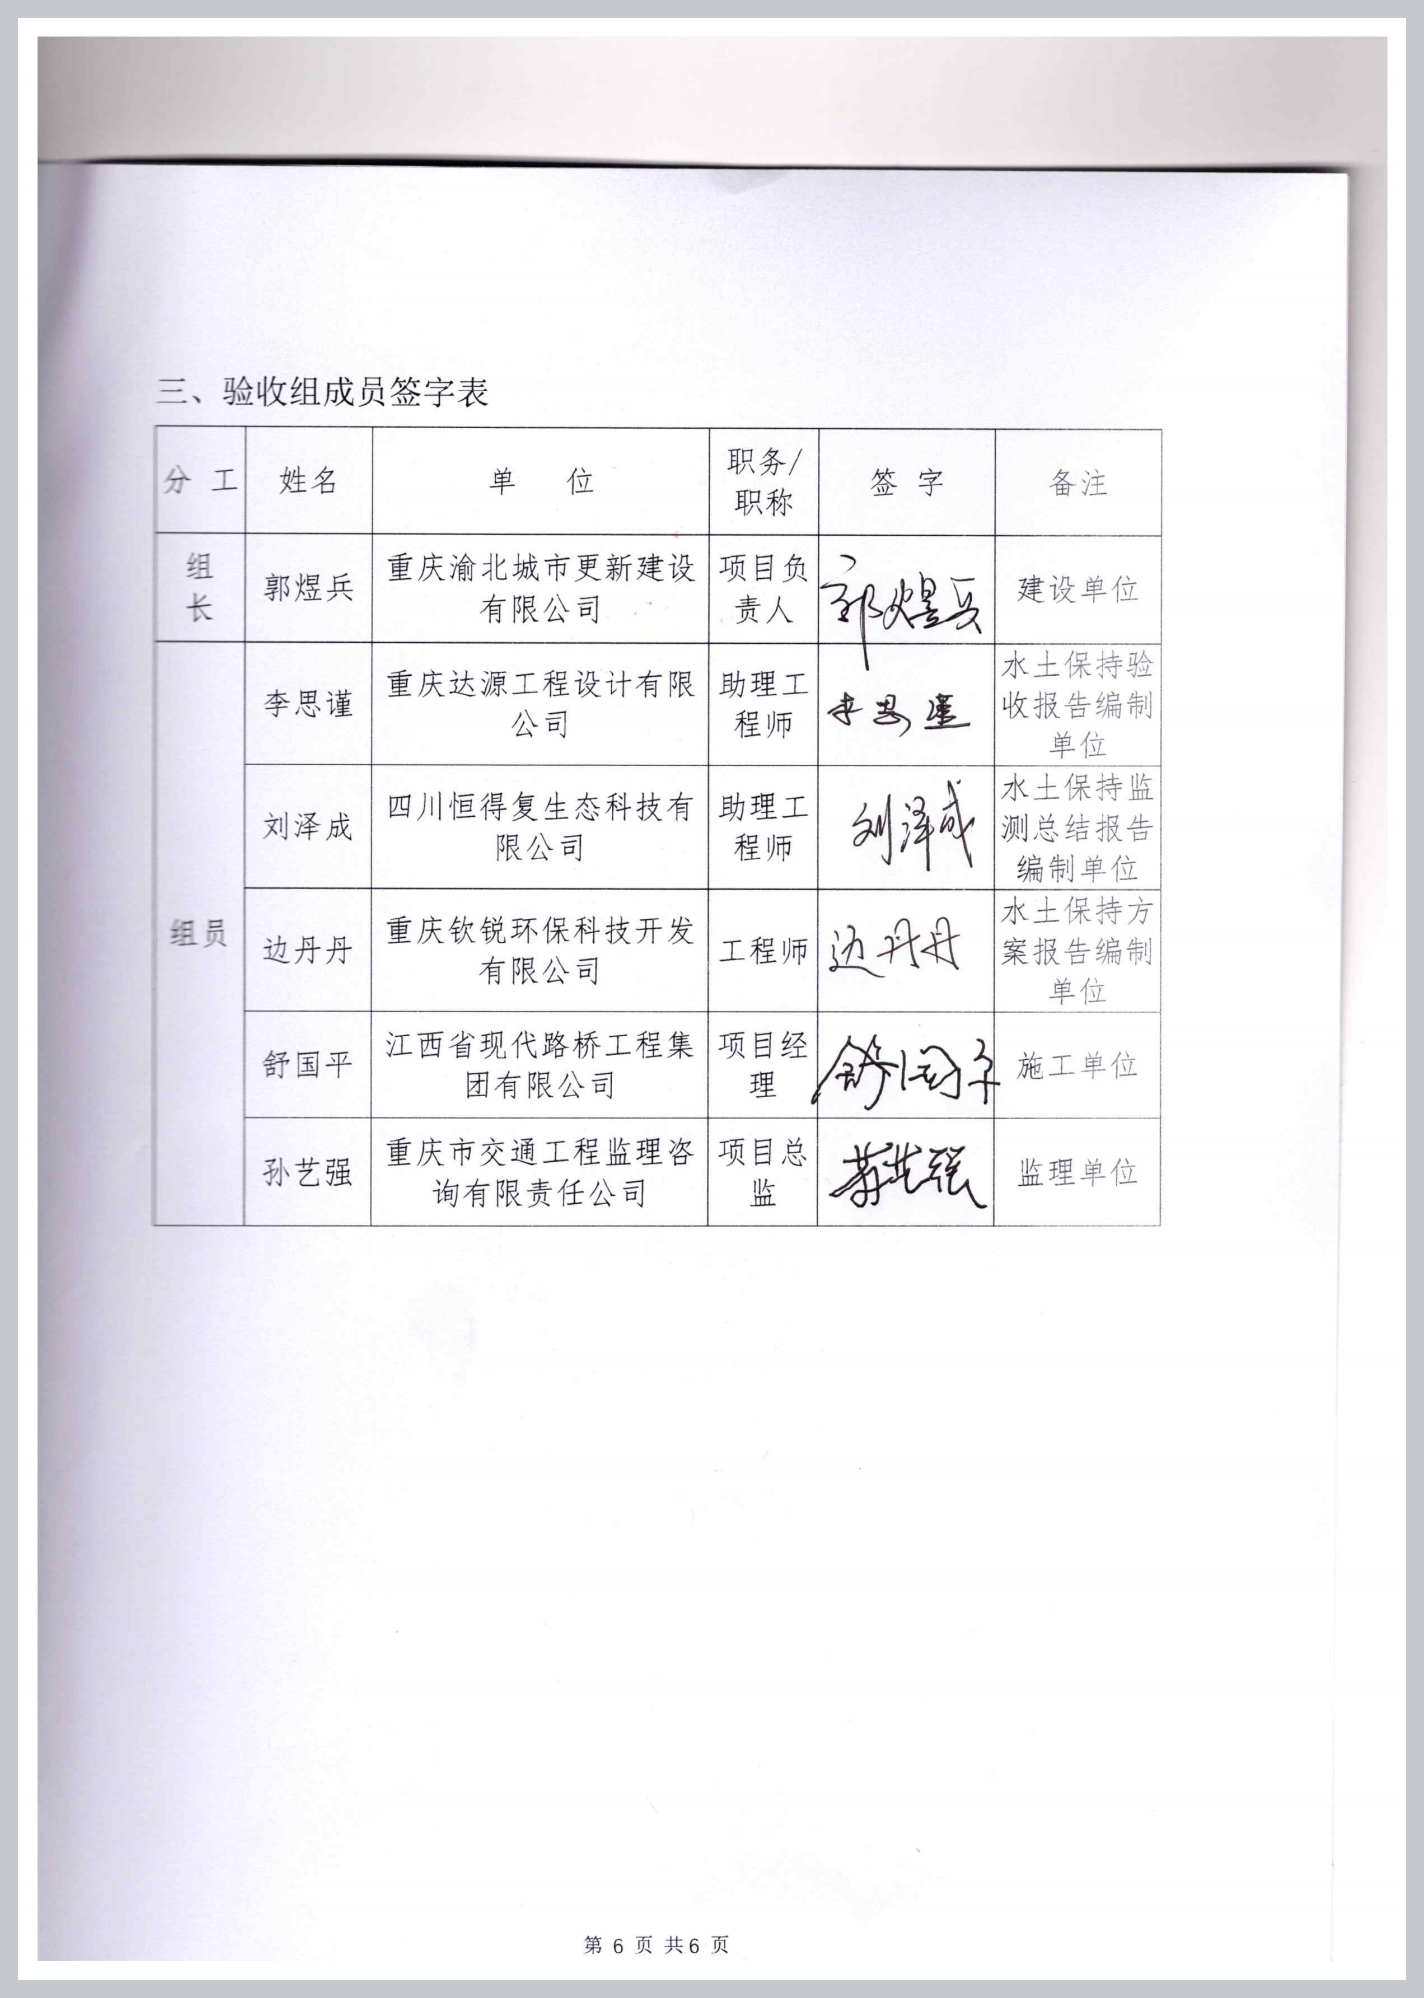 三、验收组成员签字表
分 工
姓名
单 位
职务/
职称
签 字
备注
组
长
郭煜兵
重庆渝北城市更新建设
有限公司
项目负
责人
郭煜兵
建设单位
组员
李思谨
重庆达源工程设计有限
公司
助理工
程师
李思谨
水土保持验
收报告编制
单位
刘泽成
四川恒得复生态科技有
限公司
助理工
程师
刘泽成
水土保持监
测总结报告
编制单位
边丹丹
重庆钦锐环保科技开发
有限公司
工程师
边丹丹
水土保持方
案报告编制
单位
舒国平
江西省现代路桥工程集
团有限公司
项目经
理
舒国平
施工单位
孙艺强
重庆市交通工程监理咨
询有限责任公司
项目总
监
监理单位
第 6 页 共6 页